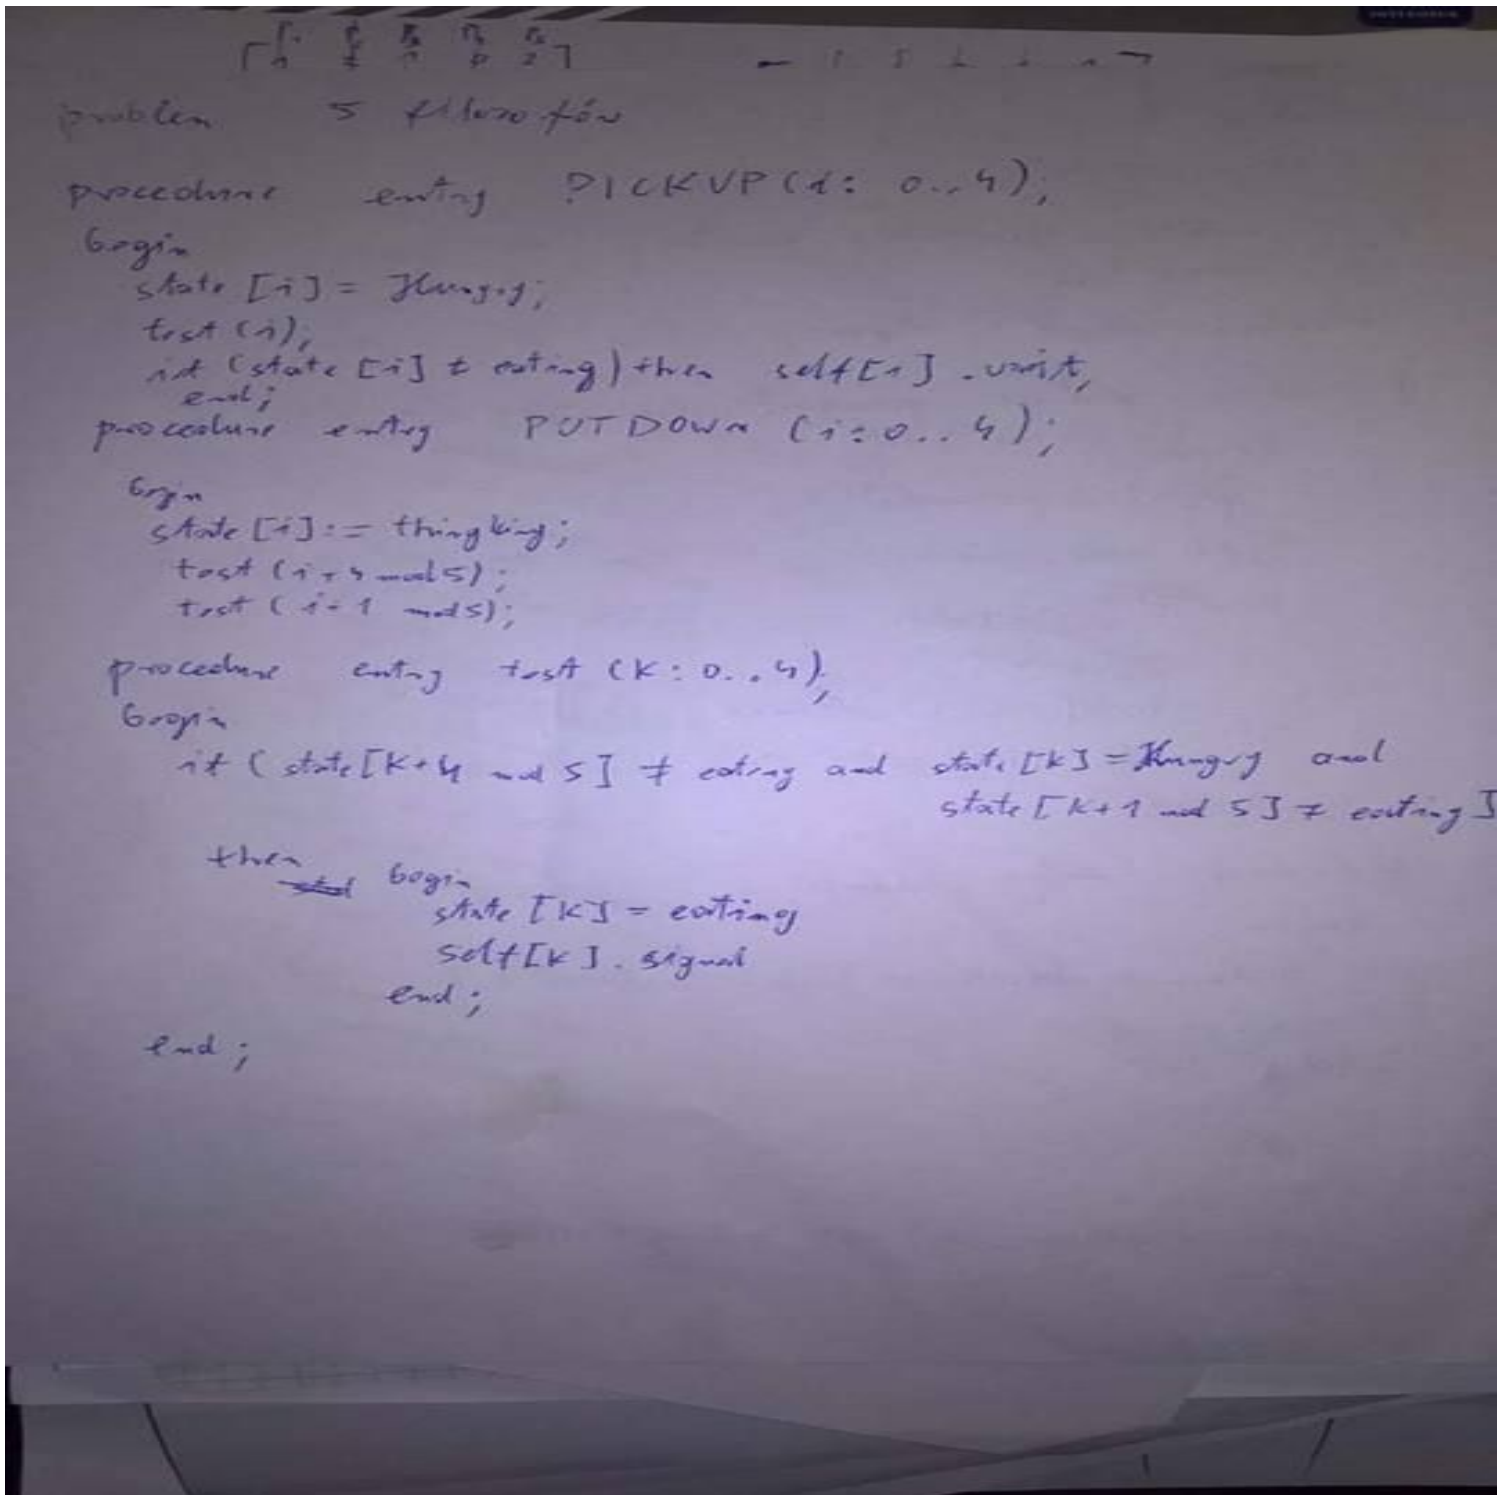 problem 5 filozofów
procedure entry PICKUP(i: 0..4);
begin
state [i] = Hungry;
test (i);
if (state [i] ≠ eating) then self[i] .wait,
end;
procedure entry PUTDOWN (i:0..4);
begin
state [i]:= thingking;
test (i+4 mod 5);
test (i+1 mod 5);
procedure entry test (K: 0..4);
begin
if ( state [K+4 mod 5] ≠ eating and state [k] = Hungry and
state [K+1 mod 5] ≠ eating]
then begin
state [K] = eating
self[K] . signal
end;
end;